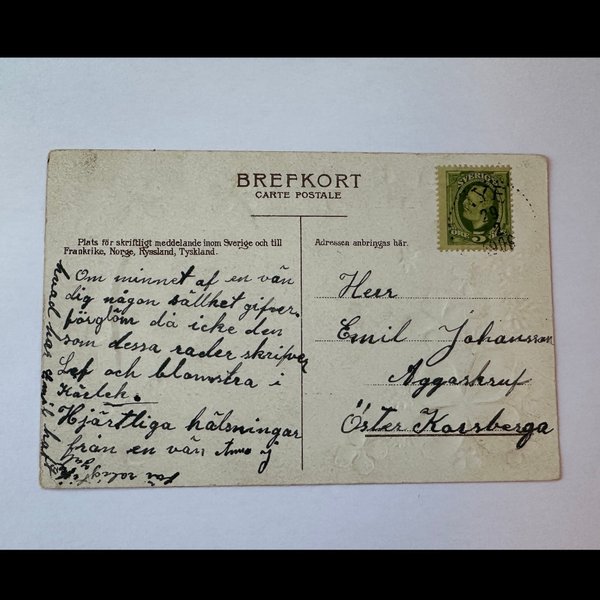 BREFKORT
CARTE POSTALE
SVERIGE
ÖRE 5
29
2
Plats för skriftligt meddelande inom Sverige och till
Frankrike, Norge, Ryssland, Tyskland.
Adressen anbringas här.
Om minnet af en vän
dig någon sällhet gifver
förglöm då icke den
som dessa rader skrifver
Lef och blomstra i
Kärlek.
Hjärtliga hälsningar
från en vän Anna J
hvad har Emil haft
för roligt
Herr
Emil Johansson
Aggaskruf
Öster Korsberga